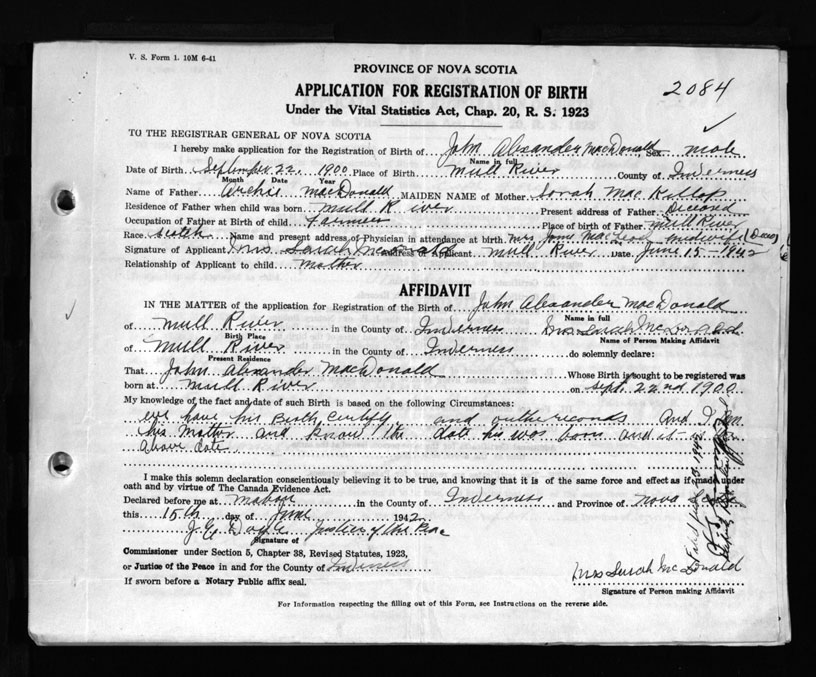 V. S. Form 1. 10M 6-41
PROVINCE OF NOVA SCOTIA
2084
APPLICATION FOR REGISTRATION OF BIRTH
Under the Vital Statistics Act, Chap. 20, R. S. 1923
TO THE REGISTRAR GENERAL OF NOVA SCOTIA
I hereby make application for the Registration of Birth of John Alexander MacDonald Sex male
Name in full
Date of Birth September 22. 1900 Place of Birth Mull River County of Inverness
Month Day Year
Name of Father Archie MacDonald MAIDEN NAME of Mother Sarah MacKillop
Residence of Father when child was born Mull River Present address of Father Deceased
Occupation of Father at Birth of child Farmer Place of birth of Father Mull River
Race Scotch Name and present address of Physician in attendance at birth Mrs John MacLeod midwife (Deceas)
Signature of Applicant Mrs Sarah McDonald Address of Applicant Mull River Date June 15-1942
Relationship of Applicant to child Mother
AFFIDAVIT
IN THE MATTER of the application for Registration of the Birth of John Alexander MacDonald
Name in full
of Mull River in the County of Inverness Mrs Sarah McDonald
Birth Place Name of Person Making Affidavit
of Mull River in the County of Inverness do solemnly declare:
Present Residence
That John Alexander MacDonald Whose Birth is sought to be registered was
born at Mull River on Sept. 22nd 1900
My knowledge of the fact and date of such Birth is based on the following Circumstances:
have his Birth certifty and records And I am
his Mother and know the date his was born and it is
above date
I make this solemn declaration conscientiously believing it to be true, and knowing that it is of the same force and effect as if made under
oath and by virtue of The Canada Evidence Act.
Declared before me at Mabou in the County of Inverness and Province of Nova Scotia
this 15th day of June 1942
Doyle Justice of the Peac
Signature of
Commissioner under Section 5, Chapter 38, Revised Statutes, 1923,
or Justice of the Peace in and for the County of Inverness
Mrs Sarah McDonald
If sworn before a Notary Public affix seal.
Signature of Person making Affidavit
For Information respecting the filling out of this Form, see Instructions on the reverse side.